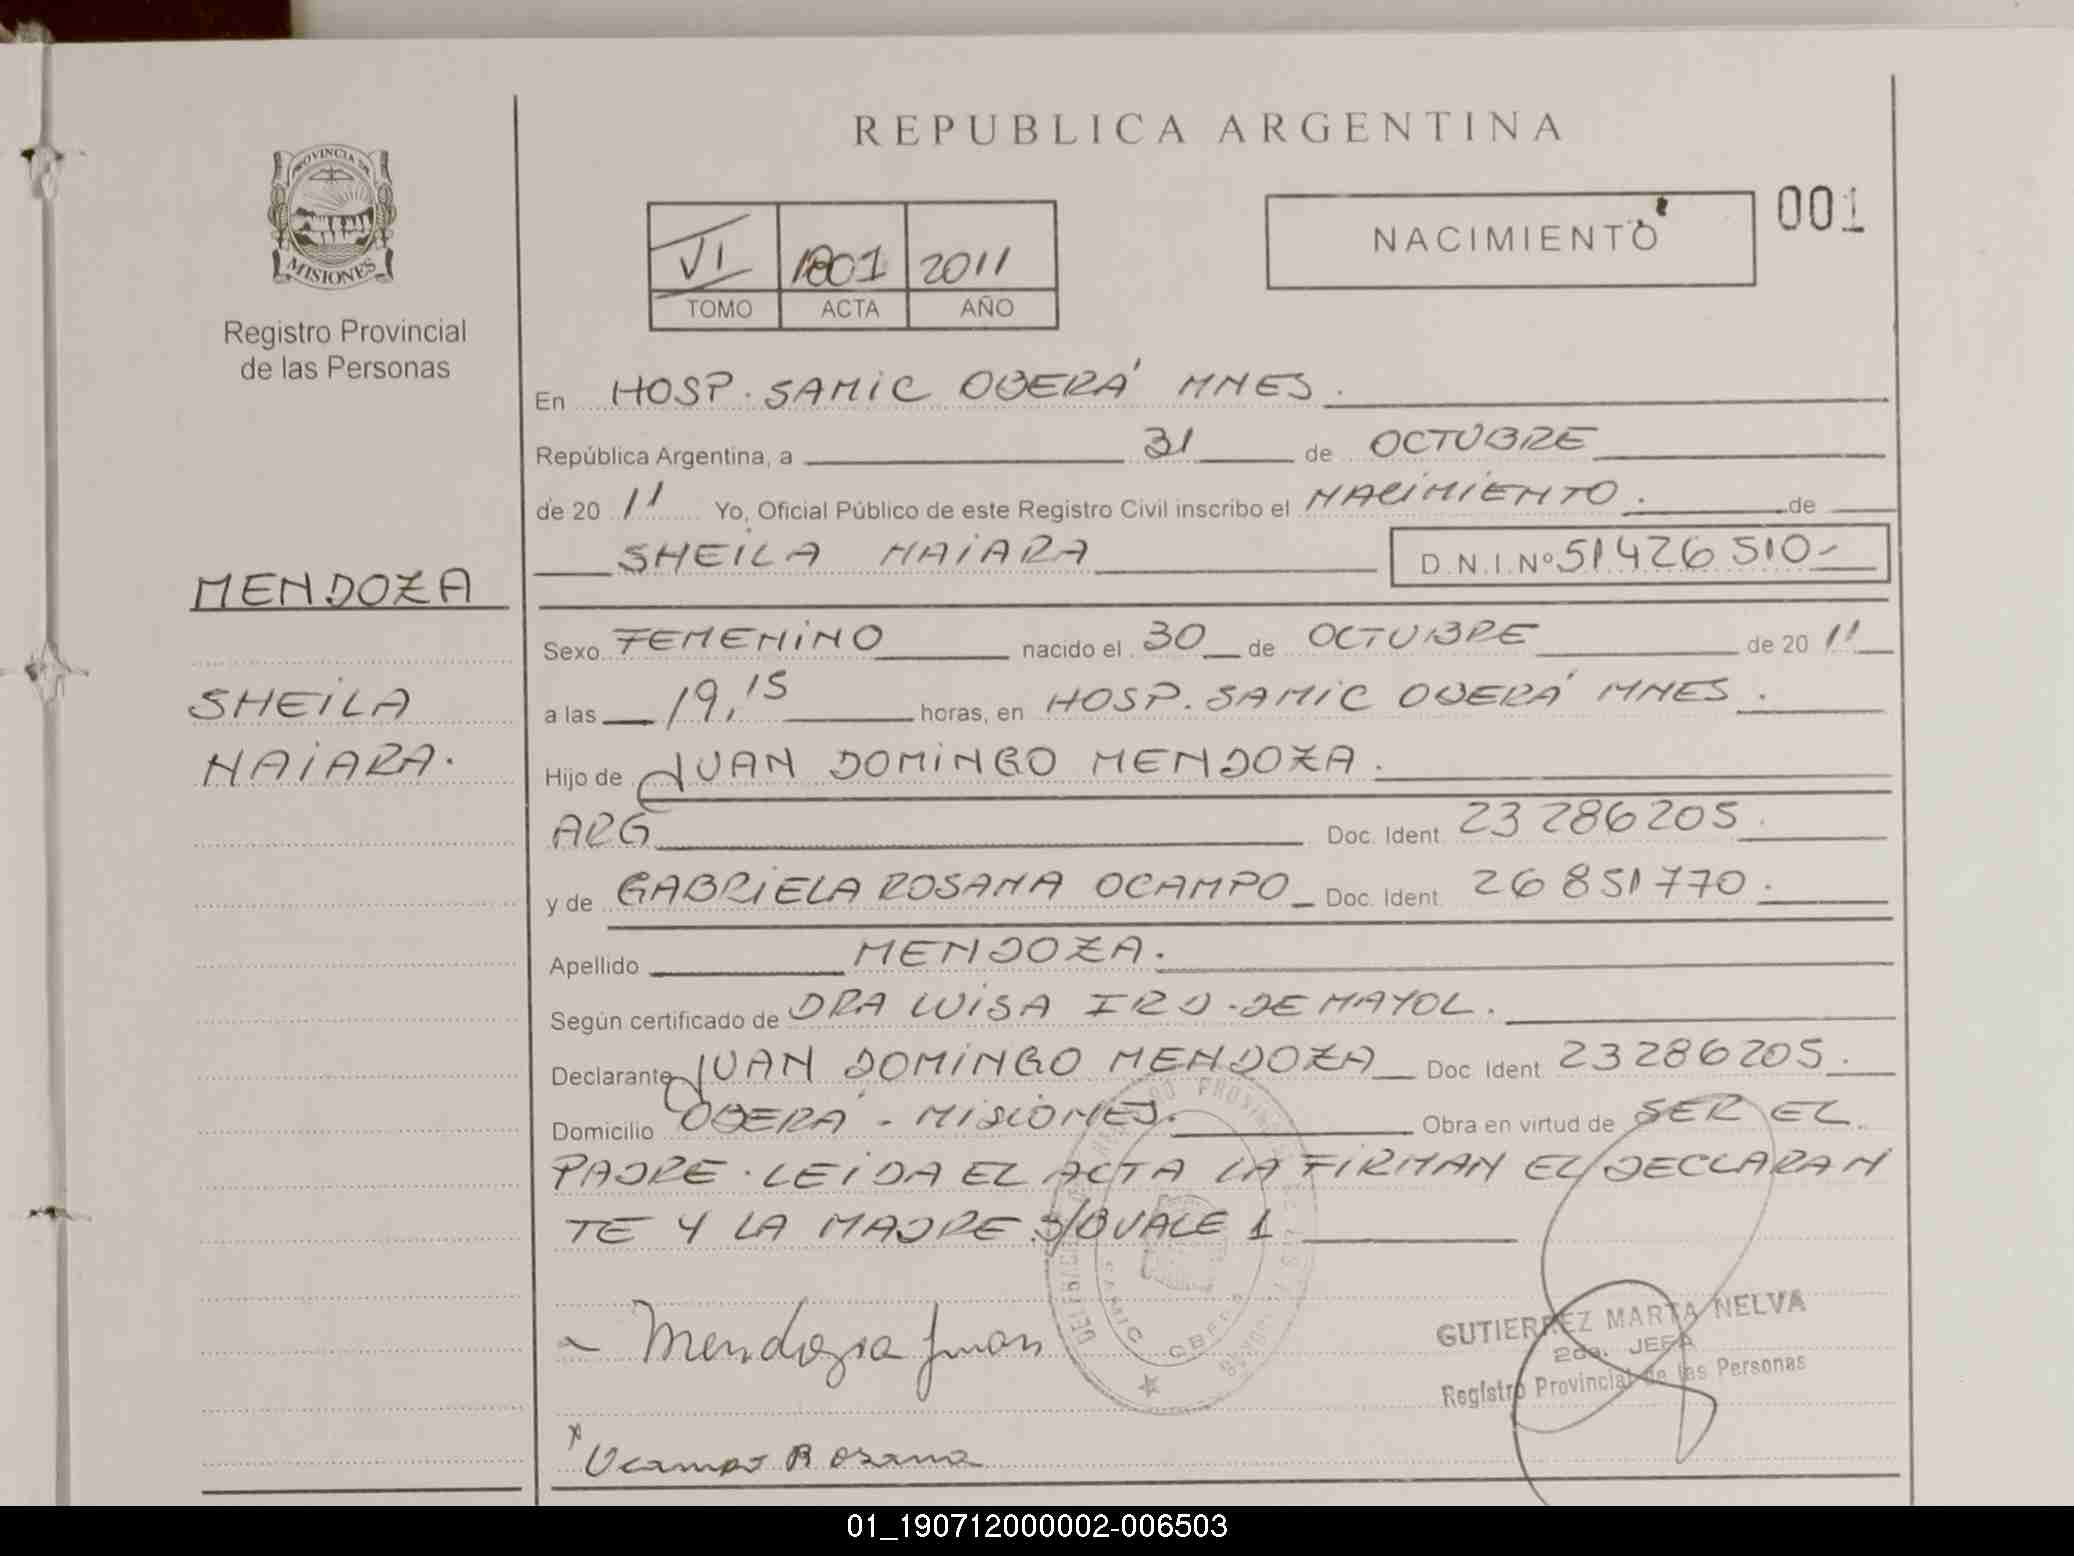 REPUBLICA ARGENTINA
PROVINCIA DE
MISIONES
Registro Provincial
de las Personas
VI 1801 2011
TOMO ACTA AÑO
NACIMIENTO
001
MENDOZA
SHEILA
NAIARA.
En HOSP. SAMIC OBERÁ MNES.
República Argentina, a 31 de OCTUBRE
de 20 11 Yo, Oficial Público de este Registro Civil inscribo el NACIMIENTO. de
SHEILA NAIARA D.N.I.Nº 51426510-
Sexo FEMENINO nacido el 30 de OCTUBRE de 20 11
a las 19,15 horas, en HOSP. SAMIC OBERÁ MNES.
Hijo de JUAN DOMINGO MENDOZA.
ARG Doc. Ident. 23286205.
y de GABRIELA ROSANA OCAMPO Doc. Ident. 26851770.
Apellido MENDOZA.
Según certificado de DRA LUISA IRD. DE MAYOL.
Declarante JUAN DOMINGO MENDOZA Doc. Ident. 23286205.
Domicilio OBERÁ - MISIONES. Obra en virtud de SER EL
PADRE. LEIDA EL ACTA LA FIRMAN EL DECLARAN
TE Y LA MADRE S/B VALE 1
Mendoza Juan
GUTIERREZ MARTA NELVA
2da. JEFA
Registro Provincial de las Personas
x Ocampo Rosana
01_190712000002-006503